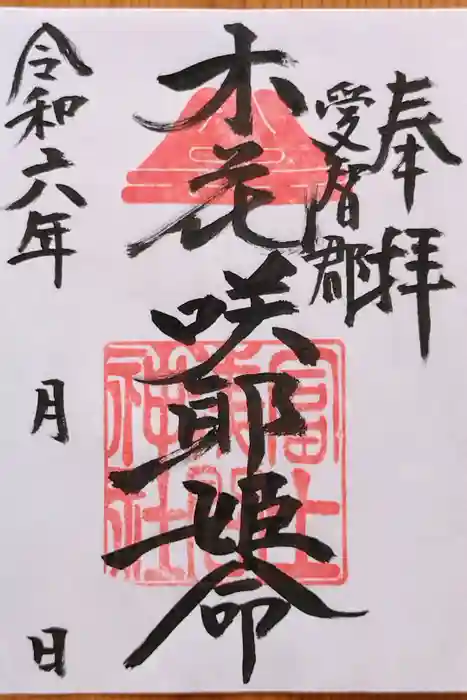 奉拝
愛智郡
木花咲耶姫命
富士浅間神社
令和六年 月 日